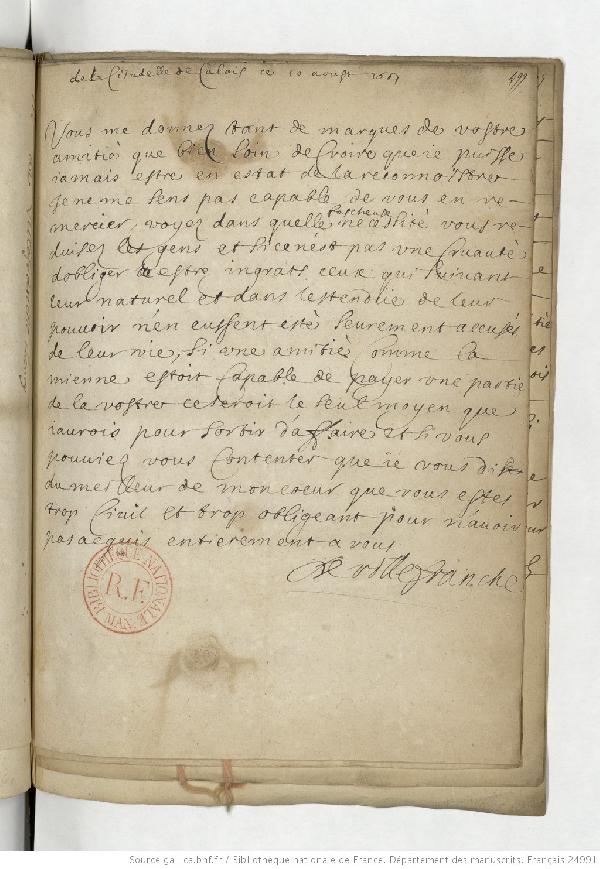 de la Citadelle de Calais ce 10 aoust 1651
499
Vous me donnez tant de marques de vostre
amitié que bien loin de Croire que ie puisse
iamais estre en estat de la reconnoistre
ie ne me sens pas capable de vous en re-
mercier, voyez dans quelle fascheuse necessité vous re-
duisez les gens et si ce nest pas vne Cruauté
dobliger a estre ingrats ceux qui suiuant
leur naturel et dans lestendue de leur
pouuoir n'en eussent esté seurement accusés
de leur vie, si vne amitié Comme la
mienne estoit Capable de payer vne partie
de la vostre ce seroit le seul moyen que
iaurois pour sortir daffaire et si vous
pouuiez vous Contenter que ie vous dise
du meilleur de mon coeur que vous estes
trop Ciuil et trop obligeant pour n'auoir
pas acquis entierement a vous
De villefranche
BIBLIOTHEQUE NATIONALE
R.F.
MAN.
Source gallica.bnf.fr / Bibliothèque nationale de France. Département des manuscrits. Français 24991